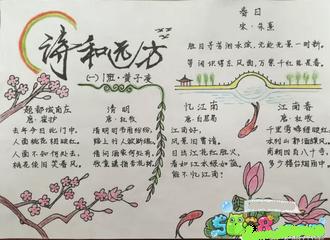 诗和远方
(一)1班·黄子凌
春日
宋·朱熹
胜日寻芳泗水滨,无边光景一时新。
等闲识得东风面,万紫千红总是春。
题都城南庄
唐·崔护
去年今日此门中,
人面桃花相映红。
人面不知何处去,
桃花依旧笑春风。
清明
唐·杜牧
清明时节雨纷纷,
路上行人欲断魂。
借问酒家何处有,
牧童遥指杏花村。
忆江南
唐·白居易
江南好,
风景旧曾谙。
日出江花红胜火,
春来江水绿如蓝。
能不忆江南?
江南春
唐·杜牧
千里莺啼绿映红,
水村山郭酒旗风。
南朝四百八十寺,
多少楼台烟雨中。